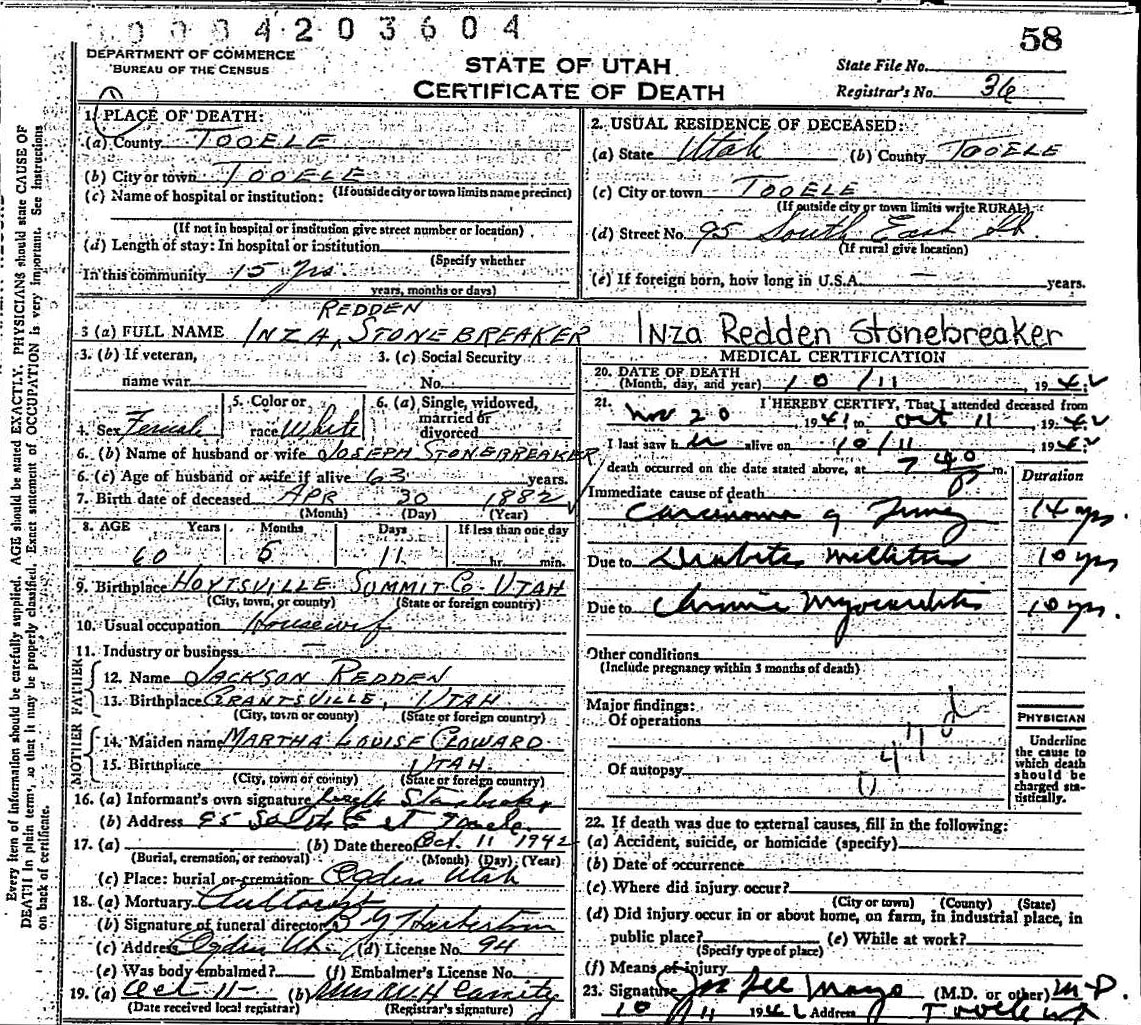 0 0 0 4 2 0 3 6 0 4
58
DEPARTMENT OF COMMERCE
BUREAU OF THE CENSUS
STATE OF UTAH
CERTIFICATE OF DEATH
State File No.
Registrar's No. 36
Every item of information should be carefully supplied. AGE should be stated EXACTLY. PHYSICIANS should state CAUSE OF
DEATH in plain terms, so that it may be properly classified. Exact statement of OCCUPATION is very important. See instructions
on back of certificate.
1. PLACE OF DEATH:
(a) County TOOELE
(b) City or town TOOELE
(If outside city or town limits name precinct)
(c) Name of hospital or institution:
(If not in hospital or institution give street number or location)
(d) Length of stay: In hospital or institution
(Specify whether
In this community 15 yrs.
years, months or days)
2. USUAL RESIDENCE OF DECEASED:
(a) State Utah (b) County TOOELE
(c) City or town TOOELE
(If outside city or town limits write RURAL)
(d) Street No. 95 South East St.
(If rural give location)
(e) If foreign born, how long in U.S.A. — years.
REDDEN
3 (a) FULL NAME INZA STONEBREAKER Inza Redden Stonebreaker
3. (b) If veteran,
name war
3. (c) Social Security
No.
4. Sex Female
5. Color or
race White
6. (a) Single, widowed,
married or
divorced
6. (b) Name of husband or wife JOSEPH STONEBREAKER
6. (c) Age of husband or wife if alive 63 years.
7. Birth date of deceased APR 30 1882
(Month) (Day) (Year)
8. AGE Years Months Days If less than one day
60 5 11 hr. min.
9. Birthplace HOYTSVILLE SUMMIT CO - UTAH
(City, town, or county) (State or foreign country)
10. Usual occupation Housewif
11. Industry or business
FATHER
12. Name JACKSON REDDEN
13. Birthplace GRANTSVILLE, UTAH
(City, town or county) (State or foreign country)
MOTHER
14. Maiden name MARTHA LOUISE CLOWARD
15. Birthplace UTAH
(City, town or county) (State or foreign country)
16. (a) Informant's own signature Joseph Stonebreaker
(b) Address 95 South E st Tooele
17. (a) (b) Date thereof Oct. 11 1942
(Burial, cremation, or removal) (Month) (Day) (Year)
(c) Place: burial or cremation Ogden Utah
18. (a) Mortuary
(b) Signature of funeral director
(c) Address Ogden Ut. (d) License No. 94
(e) Was body embalmed? (f) Embalmer's License No.
19. (a) Oct 11- (b)
(Date received local registrar) (Registrar's signature)
MEDICAL CERTIFICATION
20. DATE OF DEATH
(Month, day, and year) 10/11, 1942
21. I HEREBY CERTIFY, That I attended deceased from
Nov 20 1941 to Oct 11 1942
I last saw her alive on 10/11 1942
death occurred on the date stated above, at 7 40 P m.
Duration
Immediate cause of death
Carcinoma of 14 yrs.
Due to Diabetes Mellitus 10 yrs
Due to Chronic Myocarditis 10 yrs.
Other conditions
(Include pregnancy within 3 months of death)
Major findings:
Of operations
Of autopsy
PHYSICIAN
Underline
the cause to
which death
should be
charged sta-
tistically.
22. If death was due to external causes, fill in the following:
(a) Accident, suicide, or homicide (specify)
(b) Date of occurrence
(c) Where did injury occur?
(City or town) (County) (State)
(d) Did injury occur in or about home, on farm, in industrial place, in
public place? (e) While at work?
(Specify type of place)
(f) Means of injury
23. Signature Mayo (M.D. or other) M.D.
10 11 1942 Address Tooele Ut